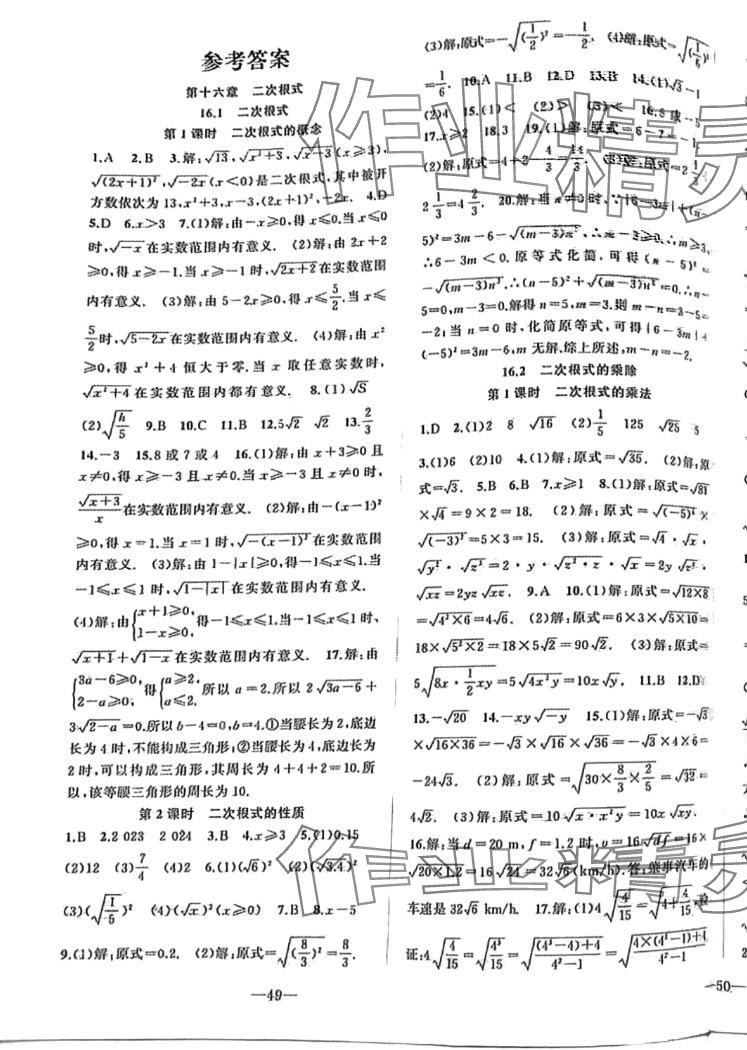 参考答案
第十六章 二次根式
16.1 二次根式
第1课时 二次根式的概念
1.A 2.B 3.解:√13,√(x²+3),√(x-3)(x≥3),
√((2x+1)²),√(-2x)(x<0)是二次根式,其中被开
方数依次为13,x²+3,x-3,(2x+1)²,-2x. 4.D
5.D 6.x>3 7.(1)解:由-x≥0,得x≤0.当x≤0
时,√(-x)在实数范围内有意义. (2)解:由2x+2
≥0,得x≥-1.当x≥-1时,√(2x+2)在实数范围
内有意义. (3)解:由5-2x≥0,得x≤5/2.当x≤
5/2时,√(5-2x)在实数范围内有意义. (4)解:由x²
≥0,得x²+4恒大于零.当x取任意实数时,
√(x²+4)在实数范围内都有意义. 8.(1)√S
(2)√(h/5) 9.B 10.C 11.B 12.5√2 √2 13.2/3
14.-3 15.8或7或4 16.(1)解:由x+3≥0且
x≠0,得x≥-3且x≠0.当x≥-3且x≠0时,
√(x+3)/x在实数范围内有意义. (2)解:由-(x-1)²
≥0,得x=1.当x=1时,√(-(x-1)²)在实数范围
内有意义. (3)解:由1-|x|≥0,得-1≤x≤1.当
-1≤x≤1时,√(1-|x|)在实数范围内有意义.
(4)解:由{x+1≥0,1-x≥0,得-1≤x≤1.当-1≤x≤1时,
√(x+1)+√(1-x)在实数范围内有意义. 17.解:由
{3a-6≥0,2-a≥0;得{a≥2,a≤2.所以a=2.所以2√(3a-6)+
3√(2-a)=0.所以b-4=0,b=4.①当腰长为2,底边
长为4时,不能构成三角形;②当腰长为4,底边长为
2时,可以构成三角形,其周长为4+4+2=10.所
以,该等腰三角形的周长为10.
第2课时 二次根式的性质
1.B 2.2 023 2 024 3.B 4.x≥3 5.(1)0.15
(2)12 (3)7/4 (4)2 6.(1)(√6)² (2)(√3.4)²
(3)(√(1/5))² (4)(√x)²(x≥0) 7.B 8.x-5
9.(1)解:原式=0.2. (2)解:原式=√((8/3)²)=8/3.
—49—
(3)解:原式=-√((1/2)²)=-1/2. (4)解:原式=
=1/6. 10.A 11.B 12.D 13.B 14.(1)√3-1
(2)4 15.(1)< (2)> (3)<
17.x≥2 18.3 19.(1)解:原式=6-7=-1.
2 1/3=4 2/3. 20.解:当n=
5)²=3m-6-√((m-3)n²).∴m≥3,
∴6-3m<0.原等式化简,可得(n-5)²=
-√((m-3)n²).∴(n-5)²+√((m-3)n²)=0.∴n-
5=0,m-3=0.解得n=5,m=3.则m-n=3-5=
-2;当n=0时,化简原等式,可得|6-3m|+
(-5)²=3m-6,m无解.综上所述,m-n=-2.
16.2 二次根式的乘除
第1课时 二次根式的乘法
1.D 2.(1)2 8 √16 (2)1/5 125 √25 5
3.(1)6 (2)10 4.(1)解:原式=√35. (2)解:原
式=√3. 5.B 6.B 7.x≥1 8.(1)解:原式=√81
×√4=9×2=18. (2)解:原式=√((-5)²)×
√((-3)²)=5×3=15. (3)解:原式=√4·√x·
√y²·√z²=2·y·√(z²·z)·√x=2yz·
√xz=2yz√xz. 9.A 10.(1)解:原式=√(12×8)
=√(4²×6)=4√6. (2)解:原式=6×3×√(5×10)=
18×√(5²×2)=18×5√2=90√2. (3)解:原式=
5√(8x·1/2xy)=5√(4x²y)=10x√y. 11.B 12.D
13.-√20 14.-xy√(-y) 15.(1)解:原式=-√6
×√(16×36)=-√6×√16×√36=-4×6×√6=
-24√3. (2)解:原式=√(30×8/3×2/5)=√32=
4√2. (3)解:原式=10√(x·x²y)=10x√xy.
16.解:当d=20 m,f=1.2时,v=16√df=16×
√(20×1.2)=16√24=32√6(km/h).答:肇事汽车的
车速是32√6 km/h. 17.解:(1)4√(4/15)=√(4+4/15).
证:4√(4/15)=√(4³/15)=√(((4³-4)+4)/(4²-1))=√((4×(4²-1)+4)/(4²-1))
—50—